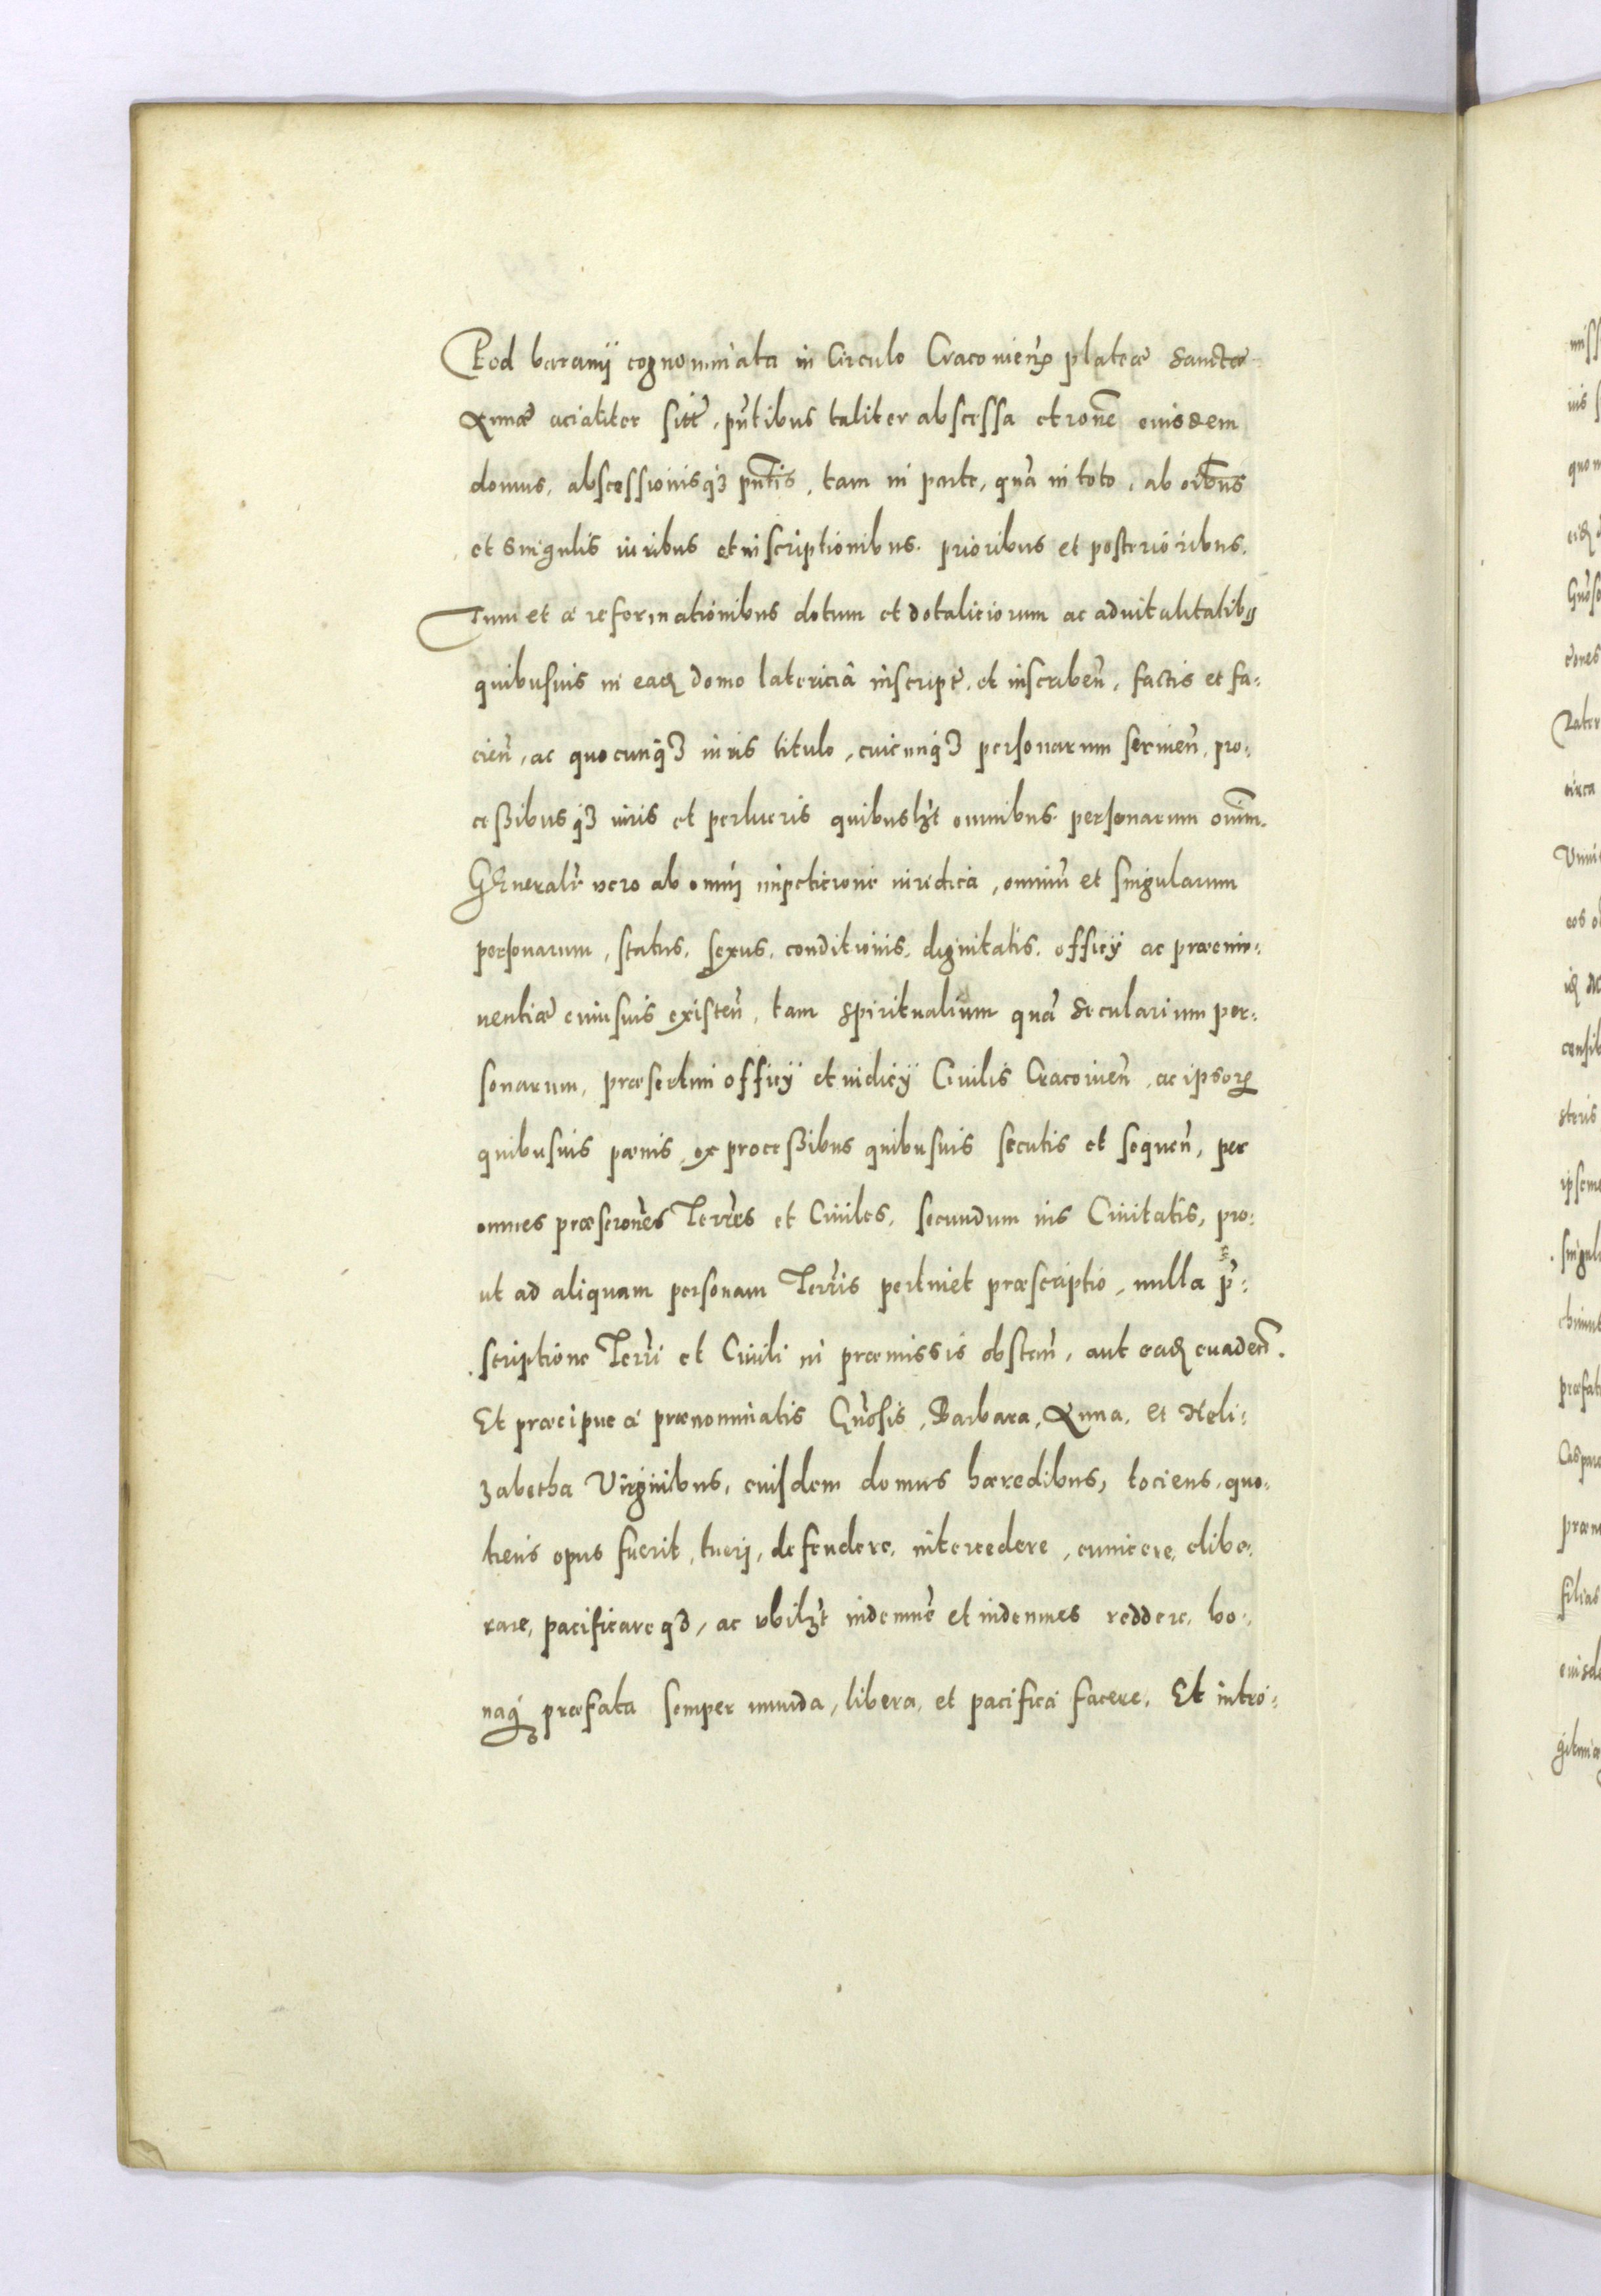 Pod baranÿ cognominata in Circulo Cracovien platеæ Sanctæ
Annæ acialiter sitt, pñtibus taliter abscessa et rone eiusdem
domus, abscessionisq3 pñtis, tam in parte, quã in toto, ab oibus
et singulis iuribus et inscriptionibus. prioribus et posterioribus.
Tum et a reformationibus dotum et dotaliciorum ac advitalitatibꝫ
quibusvis in eadẽ domo latericiâ inscript. et inscribeñ, factis et fa:
cieñ, ac quocunq3 iuris titulo, cuicunq3 personarum servieñ, pro:
ceßibusq3 iuris et perlucris quibuslꝫt omnibus personarum oium.
GEneralr vero ab omni impeticione iuridica, omniũ et singularum
personarum, status, sexus, conditionis, dignitatis, officÿ ac præemi:
nentiæ cuiusvis existeñ, tam Spiritualium quã Secularium per:
sonarum, præsertim officÿ et iudicÿ Civilis Cracovieñ, ac ipsorꝝ
quibusvis pœnis, ex proceßibus quibusvis secutis et sequeñ, per
omnes præscrones Terres et Civiles, secundum ius Civitatis, pro:
ut ad aliquam personam Terris pertinet præscriptio, nulla p̃:
scriptione Terri et Civili in præmissis obstañ, aut eadẽ evadeñ.
Et præcipue a prænominatis Gñosis, Barbara, Anna, et Heli:
zabetha Virginibus, eiusdem domus hæredibus, tociens, quo:
tiens opus fuerit, tueri, defendere, intercedere, evincere, elibe:
rare, pacificareq3, ac ubilꝫt indemne et indemnes reddere, bo:
naq3 præfata semper munda, libera, et pacifica facere. Et intro: